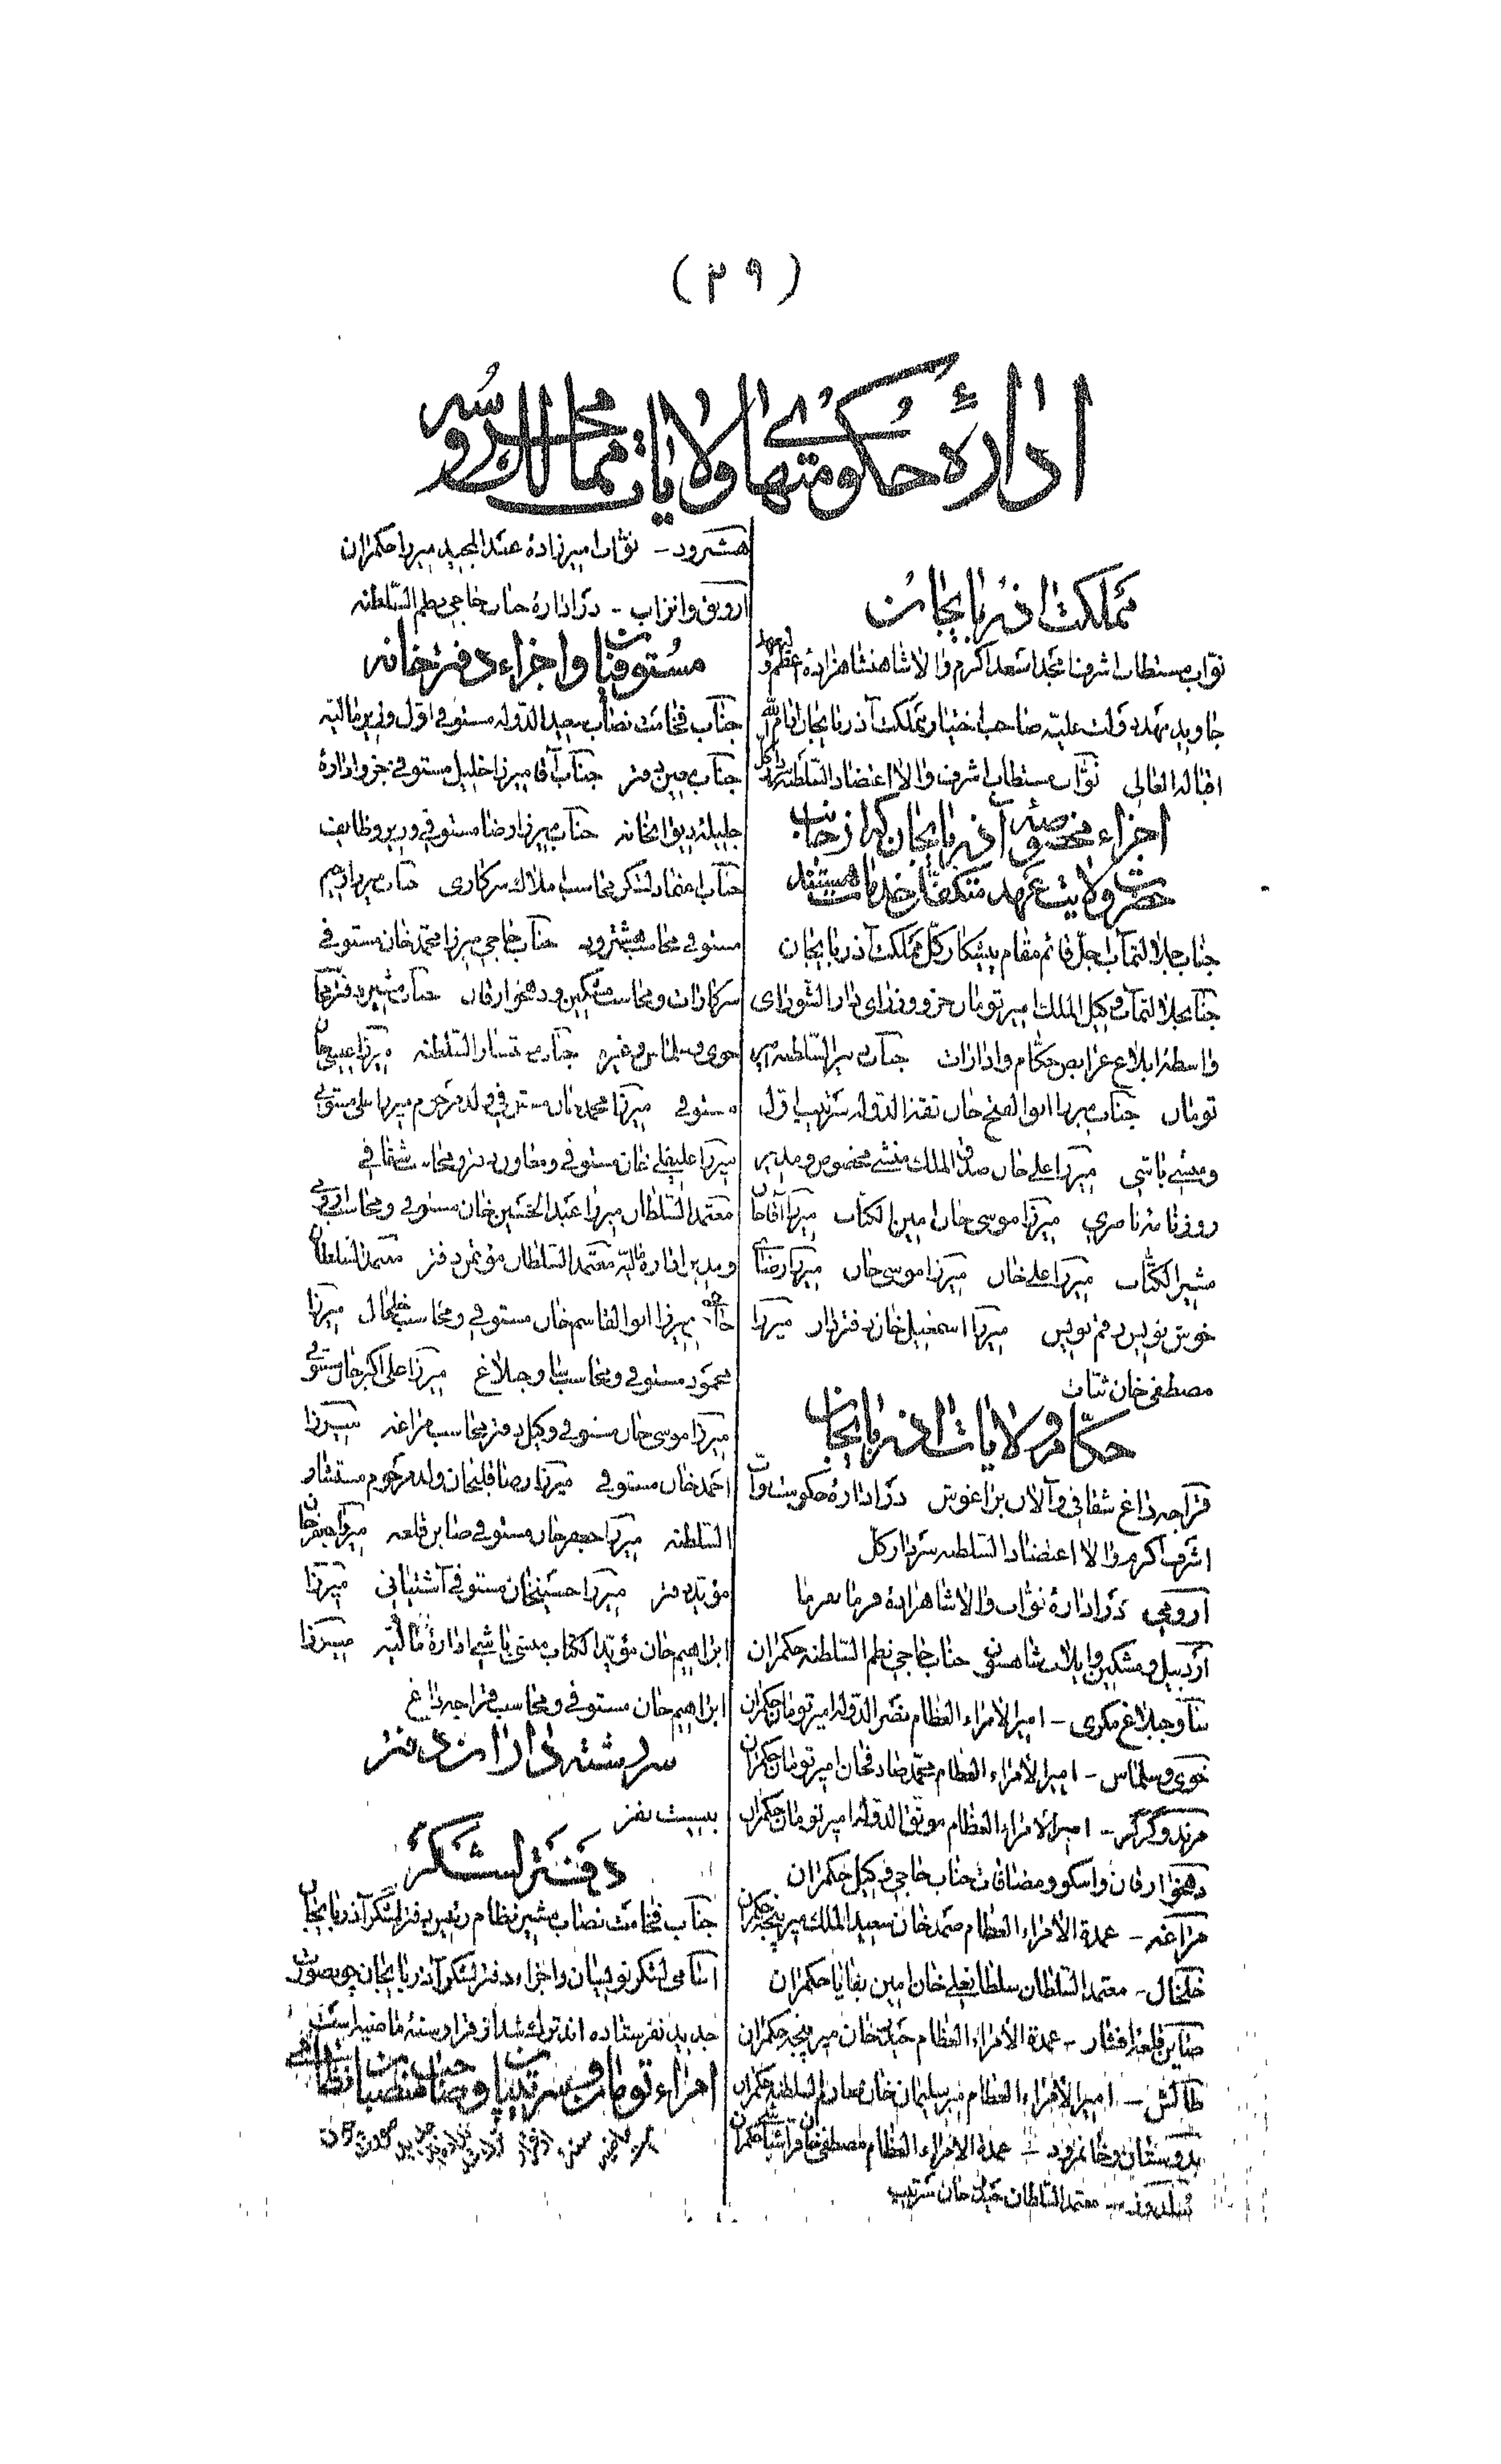 ( ۳۹ )
ادارهٔ حکومتهای ولایات ممالک محروسه
مملکت اذربایجان
نوّاب مستطاب اشرف امجد اسعد اکرم والا شاهنشاهزادهٔ اعظم ولیعهد
جاوید مهد دولت علیّه صاحب اختیار مملکت آذربایجان ادام الله
اقباله العالی نوّاب مستطاب اشرف والا اعتضاد السّلطنه سردار کل
اجزاء مخصوصهٔ آذربایجان که از جانب
حضرت ولایت عهد متکفّل خدمات هستند
جناب جلالتمآب اجلّ قائم مقام پیشکار کلّ مملکت آذربایجان
جناب جلالتمآب وکیل الملک امیر تومان جزو وزرای دار الشّورای
واسطهٔ ابلاغ عرایض حکّام و ادارات جناب السّلطنه امیر
تومان جناب میرزا ابوالفتح خان ثقة الدوله سرتیپ اول
و منشی باشی میرزا علی خان صدق الملک منشی مخصوص و مدیر
روزنامهٔ ناصری میرزا موسی خان امین الکتّاب میرزا آقاخان
مشیر الکتّاب میرزا علی خان میرزا موسی خان میرزا رضای
خوش نویس رقم نویس میرزا اسمعیل خان دفتردار میرزا
مصطفی خان ثبّات
حکّام ولایات اذربایجان
قراجه داغ شقاقی و آلان براغوش در ادارهٔ حکومت نوّاب
اشرف اکرم والا اعتضاد السّلطنه سردار کلّ
ارومی در ادارهٔ نوّاب والا شاهزادهٔ فرمانفرما
اردبیل و مشکین و ایلات شاهسون جناب حاجی نظم السّلطنه حکمران
ساوجبلاغ مکری - امیر الامراء العظام نصر الدّوله امیر تومان حکمران
خوی و سلماس - امیر الامراء العظام محمّد صادقخان امیر تومان حکمران
مرند و گرگر - امیر الامراء العظام موثّق الدوله امیر تومان حکمران
دهخوارقان و اسکو و مضافات جناب حاجی وکیل حکمران
مراغه - عمدة الامراء العظام صمد خان سعید الملک میرپنجه حکمران
خلخال - معتمد السّلطان سلطانعلی خان امین بقایا حکمران
صاین قلعه افشار - عمدة الامراء العظام خان میر پنجه حکمران
طالش - امیر الامراء العظام میر سلیمان خان صارم السلطنه حکمران
بدوستان و خانمرود - عمدة الامراء العظام مصطفی خان حکمران
سلدوز - معتمد السّلطان خان سرتیپ
هشترود - نوّاب امیرزاده عبد المجید میرزا حکمران
ارونق و انزاب - در ادارهٔ جناب حاجی نظم السّلطنه
مستوفیان و اجزاء دفترخانه
جناب فخامت نصاب سعید الدّوله مستوفی اوّل وزیر مالیّه
جناب معین دفتر جناب آقا میرزا خلیل مستوفی جزو ادارهٔ
جلیلهٔ دیوانخانه جناب میرزا رضا مستوفی و وزیر وظایف
جناب اعتماد لشکر محاسب املاک سرکاری جناب میرزا رحیم
مستوفی محاسب هشترود جناب حاجی میرزا محمّد خان مستوفی
سرکارات و محاسب مشکین و دهخوارقان جناب مشیر دفتر محاسب
خوی و سلماس و غیره جناب مستشار السّلطنه میرزا عیسی خان
مستوفی میرزا محمد خان مستوفی ولد مرحوم میرزا علی مستوفی
میرزا علیقلی خان مستوفی و محاسب شقاقی
معتمد السّلطان میرزا عبد الحسین خان مستوفی و محاسب
و مدیر ادارهٔ مالیّه معتمد السّلطان مؤتمن دفتر معتمد السّلطان
میرزا ابوالقاسم خان مستوفی و محاسب خلخال میرزا
محمود مستوفی و محاسب ساوجبلاغ میرزا علی اکبر خان مستوفی
میرزا موسی خان مستوفی وکیل دفتر محاسب مراغه میرزا
احمد خان مستوفی میرزا رضا قلیخان ولد مرحوم مستشار
السّلطنه میرزا جعفر خان مستوفی صاین قلعه میرزا جعفر خان
مؤیّد دفتر میرزا حسینخان مستوفی آشتیانی میرزا
ابراهیم خان مؤیّد الکتّاب منشی باشی ادارهٔ مالیّه میرزا
ابراهیم خان مستوفی و محاسب قراجه داغ
سررشته داران دفتر
بیست نفر
دفتر لشکر
جناب فخامت نصاب مشیر نظام رئیس دفتر لشکر آذربایجان
اسامی لشکرنویسان و اجزاء دفتر لشکر آذربایجان چون صورت
جدید نفرستاده اند ترک شد از قرار سنهٔ ماضیه است
امراء تومان و سرتیپان و صاحب منصبان نظامی